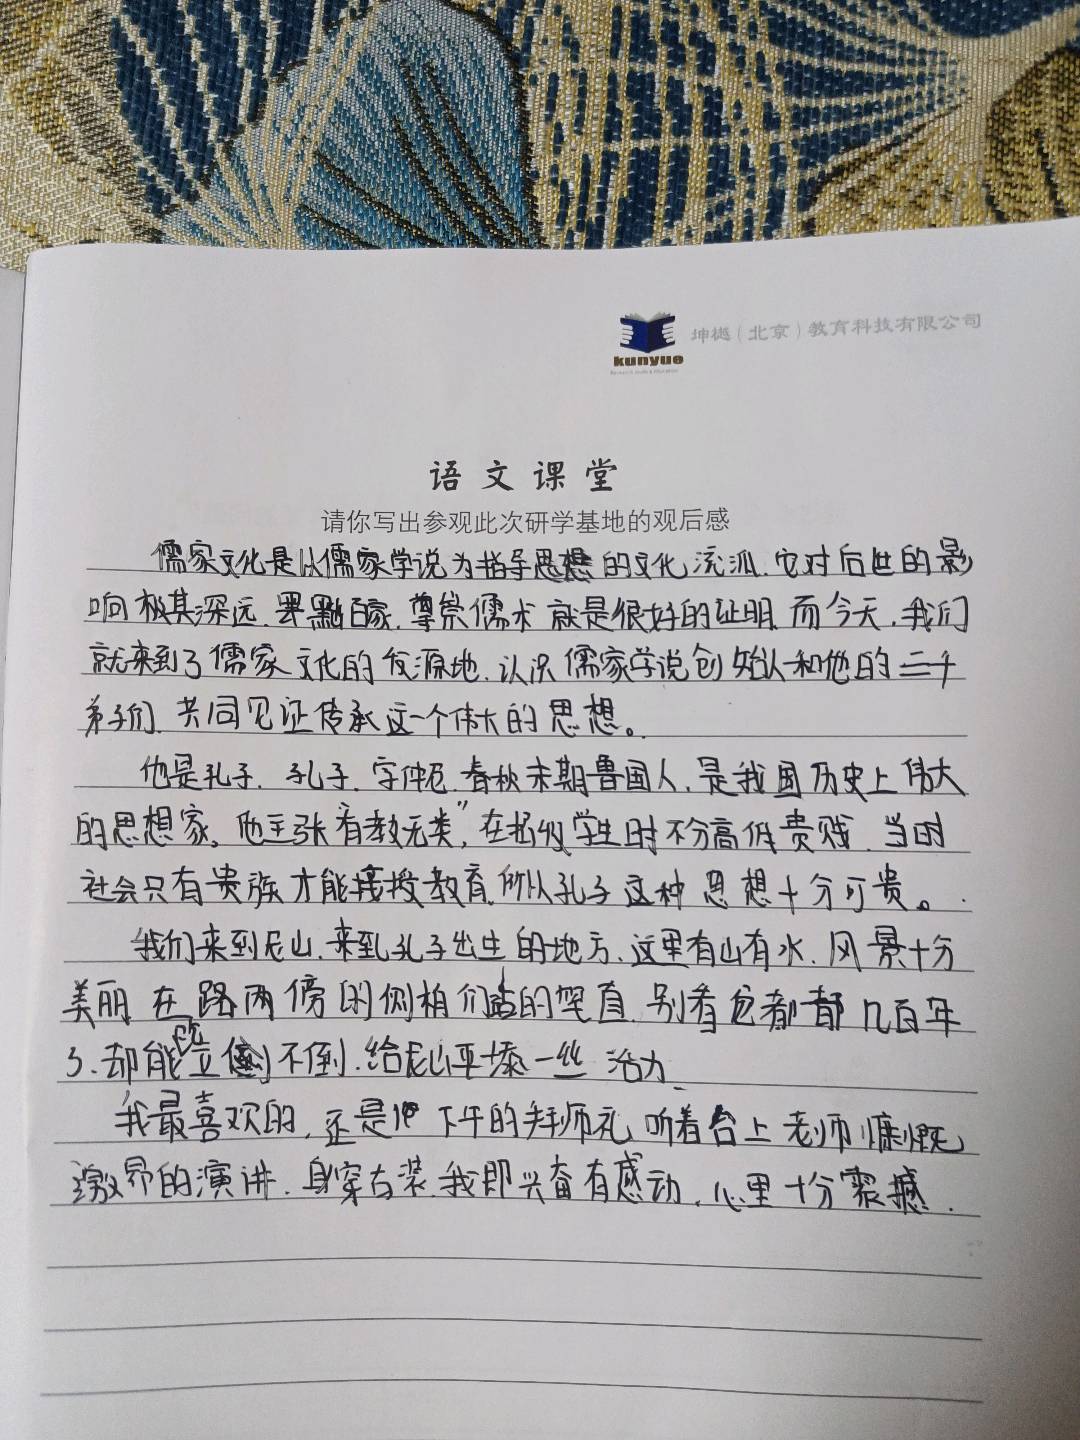 kunyue
坤樾（北京）教育科技有限公司
语文课堂
请你写出参观此次研学基地的观后感
儒家文化是以儒家学说为指导思想的文化流派,它对后世的影
响极其深远,罢黜百家,尊崇儒术就是很好的证明,而今天,我们
就来到了儒家文化的发源地,认识儒家学说创始人和他的三千
弟子们,共同见证传承这一个伟大的思想。
他是孔子,孔子,字仲尼,春秋末期鲁国人,是我国历史上伟大
的思想家。他主张"有教无类",在招收学生时不分高低贵贱,当时
社会只有贵族才能接授教育,所以孔子这种思想十分可贵。
我们来到尼山,来到孔子出生的地方,这里有山有水,风景十分
美丽,在路两傍的侧柏们站的笔直,别看它都都几百年
了,却能立不倒,给尼山平添一丝活力,
我最喜欢的,还是下午的拜师礼,听着台上老师慷慨
激昂的演讲,身穿古装,我即兴奋有感动,心里十分震撼.